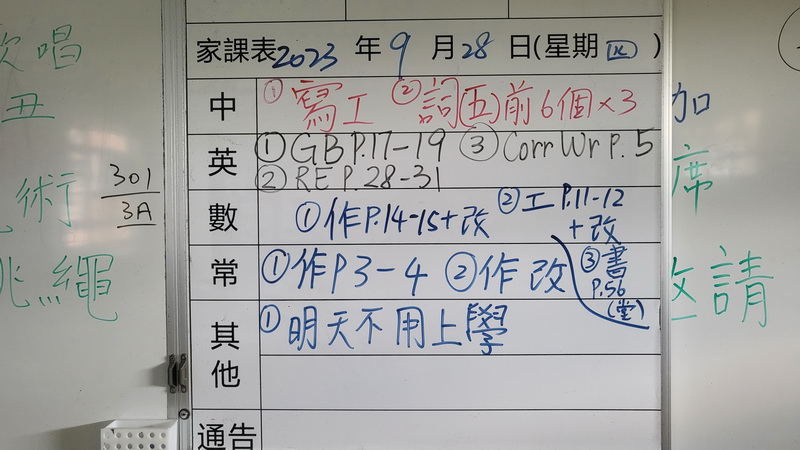 家課表2023年9月28日(星期四)
中 ①寫工 ②詞(五)前6個×3
英 ①GB P.17-19 ③Corr Wr P.5
②RE P.28-31
數 ①作P.14-15+改 ②工P.11-12
+改
③書
P.56
(堂)
常 ①作P3-4 ②作改
其他 ①明天不用上學
通告
唱
丑
術
繩
301
3A
加
席
請